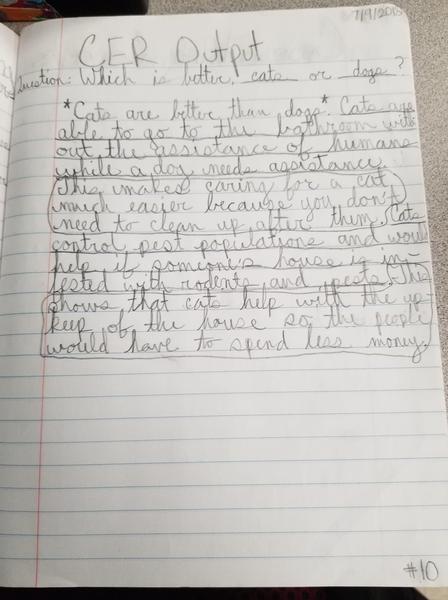 7/9/2018
CER Output
Question: Which is better, cats or dogs?
*Cats are better than dogs* Cats are
able to go to the bathroom with-
out the assistance of humans
while a dog needs assistance.
This makes caring for a cat
much easier because you don't
need to clean up after them. Cats
control pest populations and would
help if someone's house is in-
fested with rodents and pests. This
shows that cats help with the up-
keep of the house so the people
would have to spend less money.
#10